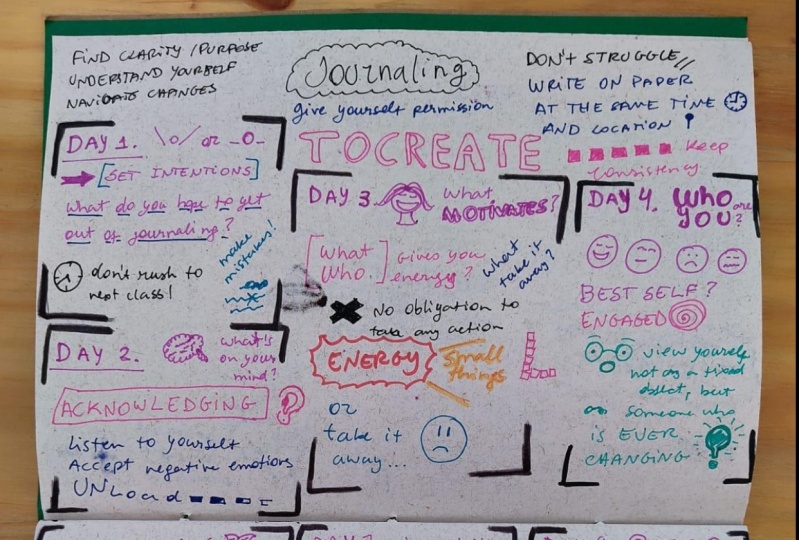 FIND CLARITY / PURPOSE
UNDERSTAND YOURSELF
NAVIGATE CHANGES
Journaling
give yourself permission
TO CREATE
DON'T STRUGGLE
WRITE ON PAPER
AT THE SAME TIME
AND LOCATION
Keep
consistency
DAY 1. \o/ or _O_
[SET INTENTIONS]
What do you hope to get
out of journaling?
make
mistakes!
don't rush to
next class!
DAY 2.
what's
on your
mind?
ACKNOWLEDGING ?
Listen to yourself
Accept negative emotions
UNLoad
DAY 3
what
MOTIVATES?
[What
Who.]
Gives you
energy?
what
take it
away?
No obligation to
take any action
ENERGY
Small
things
or
take it
away...
DAY 4. WHO are
YOU?
BEST SELF?
ENGAGED
view yourself
not as a fixed
object, but
as someone who
is EVER
CHANGING